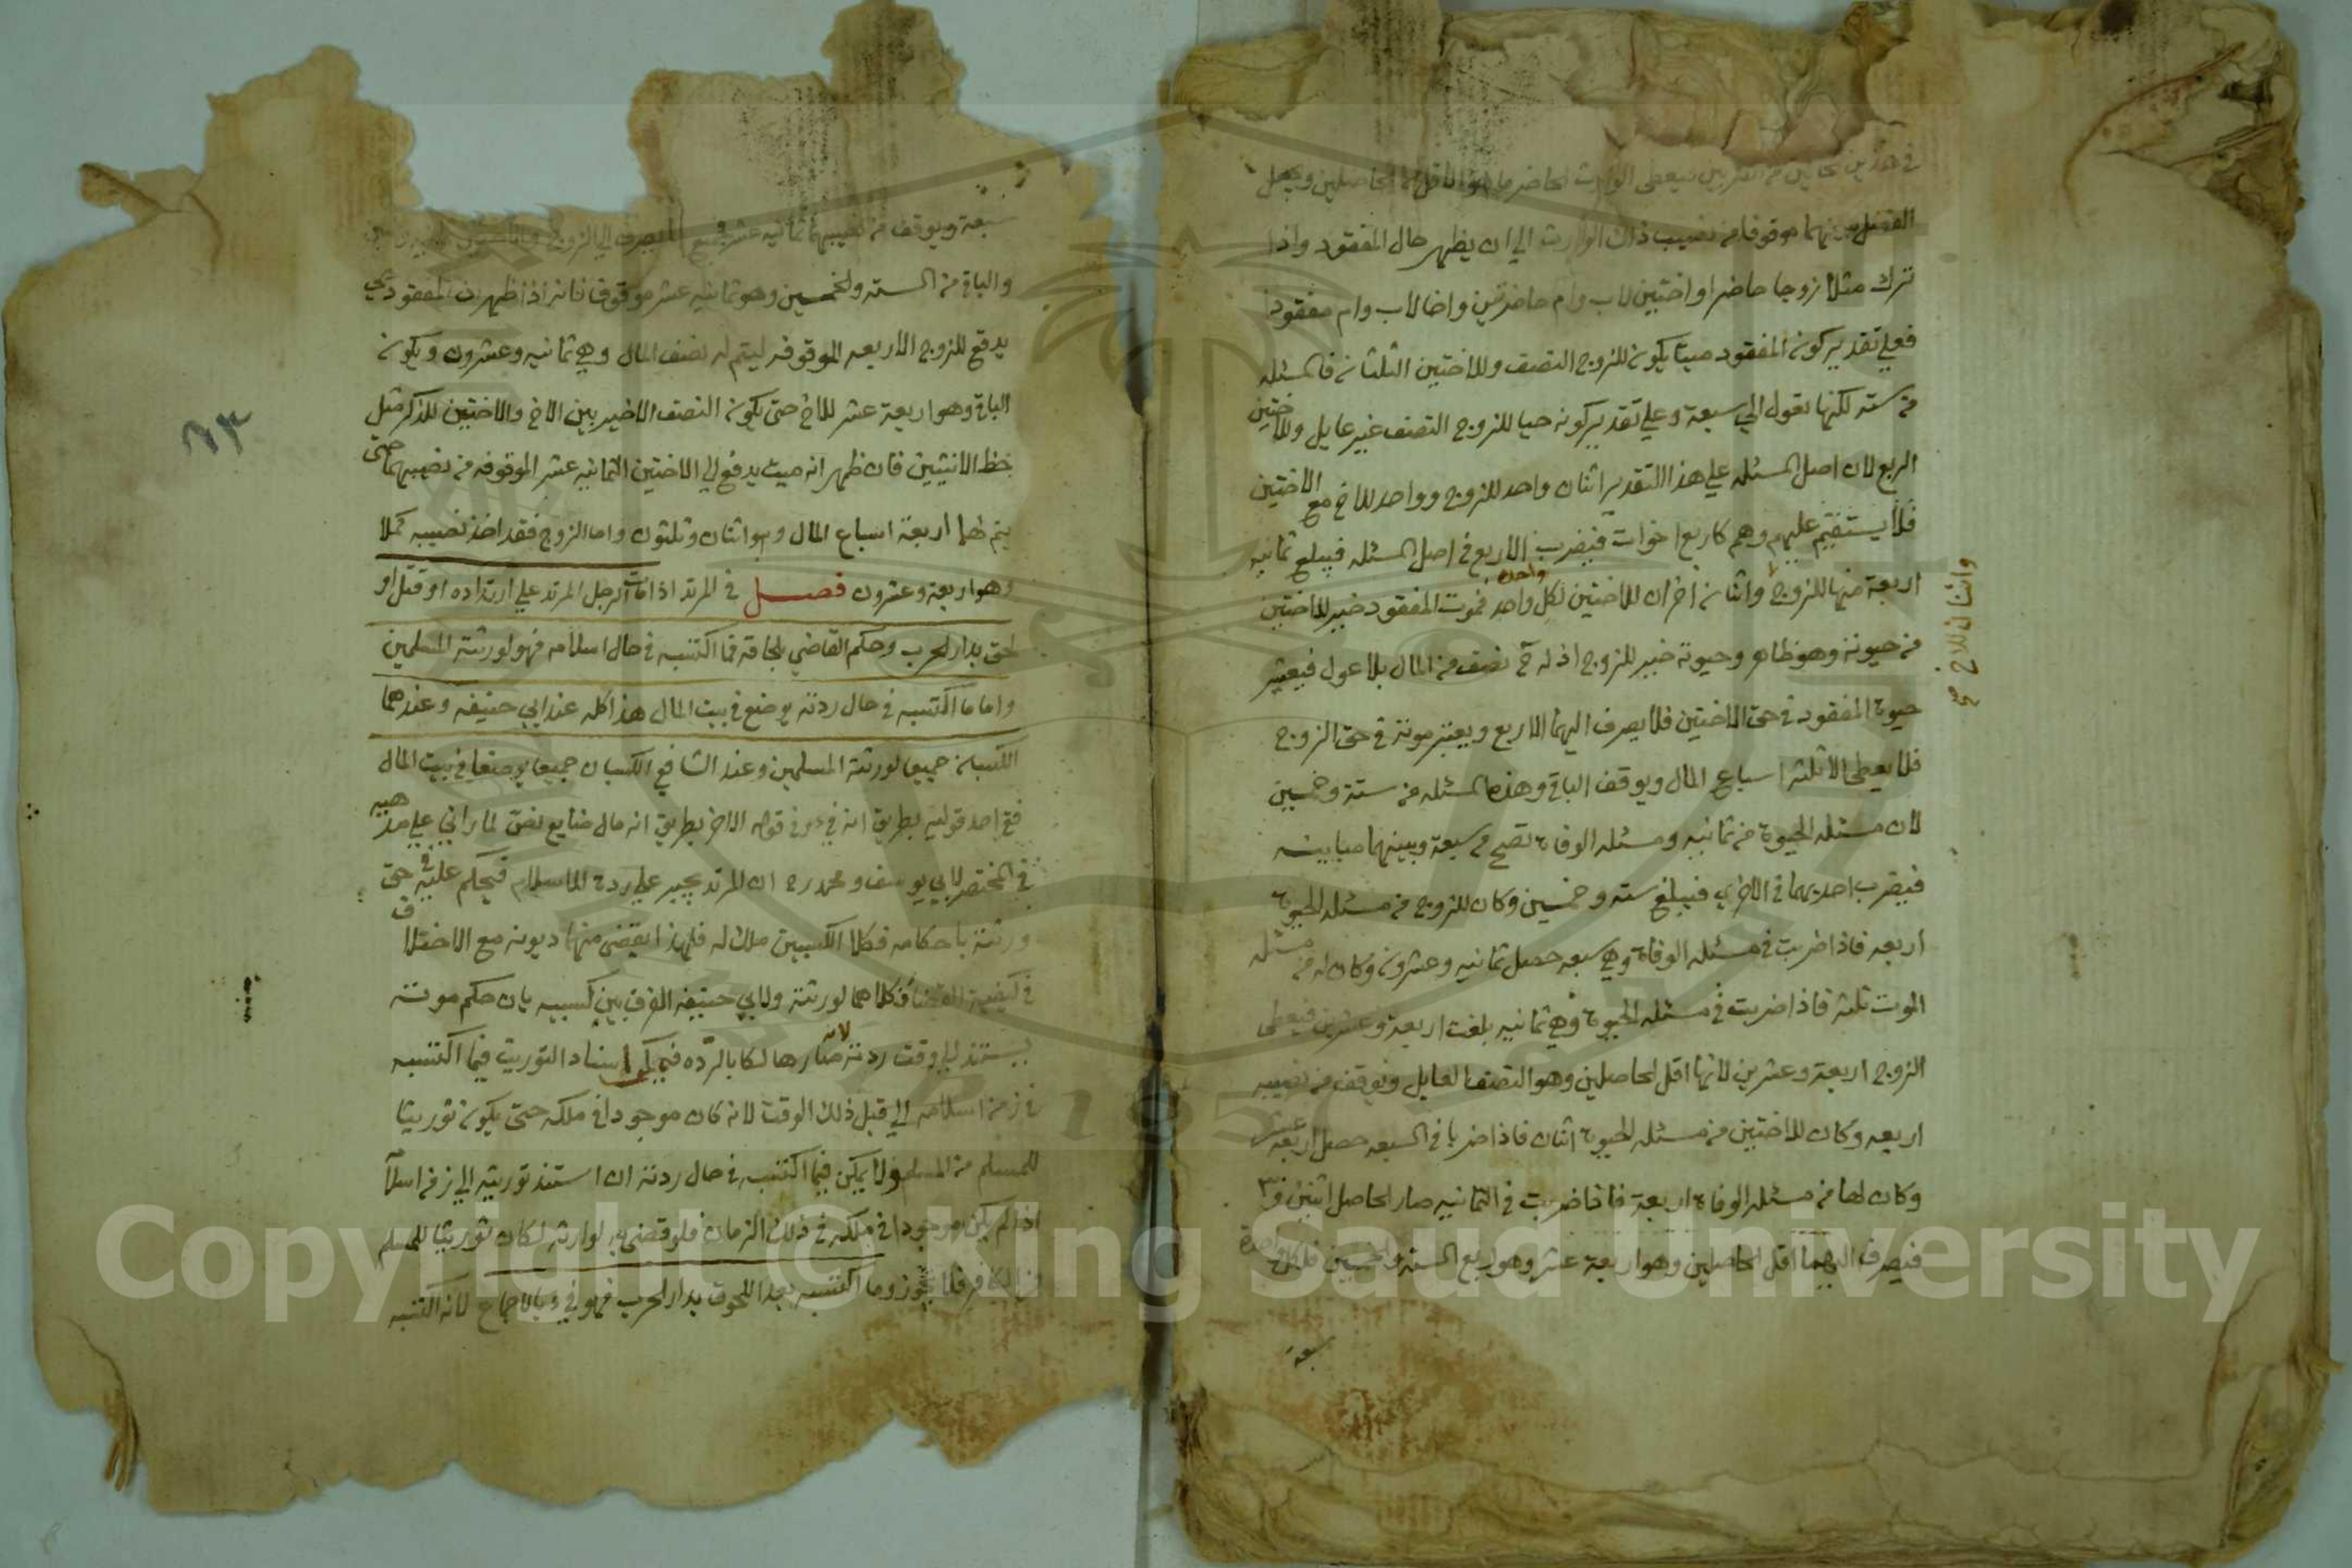 في هذين الحالين من التقديرين فيعطى الوارث الحاضر ما هو الاقل من الحاصلين ويجعل
الفضل بينهما موقوفا من نصيب ذلك الوارث الي ان يظهر حال المفقود واذا
ترك مثلا زوجا حاضرا واختين لاب وام حاضرتين واخا لاب وام مفقودا
فعلي تقدير كون المفقود ميتا يكون للزوج النصف وللاختين الثلثان فالمسئله
من سته لكنها تعول الي سبعة وعلي تقدير كونه حيا للزوج النصف غير عايل وللاختين
الربع لان اصل المسئله علي هذا التقدير اثنان واحد للزوج وواحد للاخ مع الاختين
فلا يستقيم عليهم وهم كاربع اخوات فيضرب الاربع في اصل المسئله فيبلغ ثمانيه
اربعة منها للزوج واثنان اخران للاختين لكل واحد واحد فموت المفقود خير للاختين
واثنان للاخ صح
من حيوته وهو ظاهر وحيوته خير للزوج اذ له ح نصف من المال بلا عول فيعتبر
حيوة المفقود في حق الاختين فلا يصرف اليهما الا ربع ويعتبر موته في حق الزوج
فلا يعطى الا ثلثه اسباع المال ويوقف الباقي وهذه المسئله من ستة وخمسين
لان مسئله الحيوة من ثمانيه ومسئله الوفاة تصح من سبعة وبينهما مباينه
فيضرب احديهما في الاخرى فيبلغ سته وخمسين وكان للزوج من مسئله الحيوة
اربعه فاذا ضربت في مسئله الوفاة وهي سبعه حصل ثمانيه وعشرون وكان له من مسئله
الموت ثلثه فاذا ضربت في مسئله الحيوة وهي ثمانيه بلغت اربعة وعشرين فيعطى
الزوج اربعة وعشرين لانها اقل الحاصلين وهو النصف العايل ويوقف من نصيبه
اربعه وكان للاختين من مسئله الحيوة اثنان فاذا ضربا في السبعه حصل اربعة عشر
وكان لهما من مسئله الوفاة اربعة فاذا ضربت في الثمانيه صار الحاصل اثنين و٣
فيصرف اليهما اقل الحاصلين وهو اربعة عشر وهو ربع الستة والخمسين فلكل واحدة
سبعة
٦٣
سبعة ويوقف من نصيبهما ثمانيه عشر فجميع ما يصرف الي الزوج والاختين
والباقي من السته والخمسين وهو ثمانيه عشر موقوف فانه اذا ظهر ان المفقود حي
يدفع للزوج الاربعه الموقوفه ليتم له نصف المال وهي ثمانيه وعشرون ويكون
الباقي وهو اربعة عشر للاخ حتى يكون النصف الاخير بين الاخ والاختين للذكر مثل
حظ الانثيين فان ظهر انه ميت يدفع الي الاختين الثمانيه عشر الموقوفه من نصيبهما حتى
يتم لهما اربعة اسباع المال وهو اثنان وثلثون واما الزوج فقد اخذ نصيبه كملا
وهو اربعة وعشرون فصل في المرتد اذا مات الرجل المرتد علي ارتداده او قتل او
لحق بدار الحرب وحكم القاضي بلحاقه فما اكتسبه في حال اسلامه فهو لورثته المسلمين
واما ما اكتسبه في حال ردته يوضع في بيت المال هذا كله عند ابي حنيفه وعندهما
الكسبان جميعا لورثته المسلمين وعند الشافعي الكسبان جميعا يوضعا في بيت المال
ففي احد قوليه بطريق انه فئ وفي قوله الاخر بطريق انه مال ضايع نص لما راني علي مذهبه
في المختصر لابي يوسف ومحمد رح ان المرتد يجبر علي رده الي الاسلام فيحكم عليه في حق
ورثته باحكامه فكلا الكسبين ملك له فلهذا يقضى منهما ديونه مع الاختلاف
في كيفية القضا فكلاهما لورثته ولابي حنيفه الفرق بين كسبيه بان حكم موته
يستند الي وقت ردته لانه صار هالكا بالرده فيمكن اسناد التوريث فيما اكتسبه
في زمن اسلامه الي قبل ذلك الوقت لانه كان موجودا في ملكه حتى يكون توريثا
للمسلم من المسلم ولا يمكن فيما اكتسبه في حال ردته ان استند توريثه الي زمن اسلامه
اذا لم يكن موجودا في ملكه في ذلك الزمان فلو قضى به لوارثه لكان توريثا للمسلم
من الكافر فلا يجوز وما اكتسبه بعد اللحوق بدار الحرب فهو فئ بالاجماع لانه اكتسبه
Copyright © King Saud University
1957